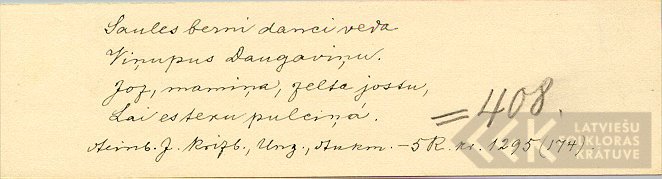 Saules berni danci veda
Viņupus Daugaviņu.
Joz, mamiņa, zelta jostu,
Lai es teku pulciņá.
=408.
Aeinb. J. Krizb., Unz., Aukm. – 5 R. nr. 1295 (174)
LATVIEŠU
FOLKLORAS
KRĀTUVE